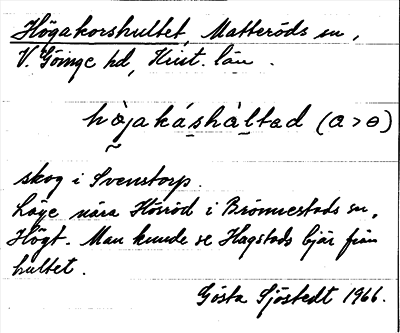 Högakorshultet, Matteröds sn,
V. Göinge hd, Krist. län.
hòjakáshàltad (a > ɵ)
skog i Svenstorp.
Läge nära Hörröd i Brönnestads sn.
Högt. Man kunde se Hagstads bjär från
hultet.
Gösta Sjöstedt 1966.